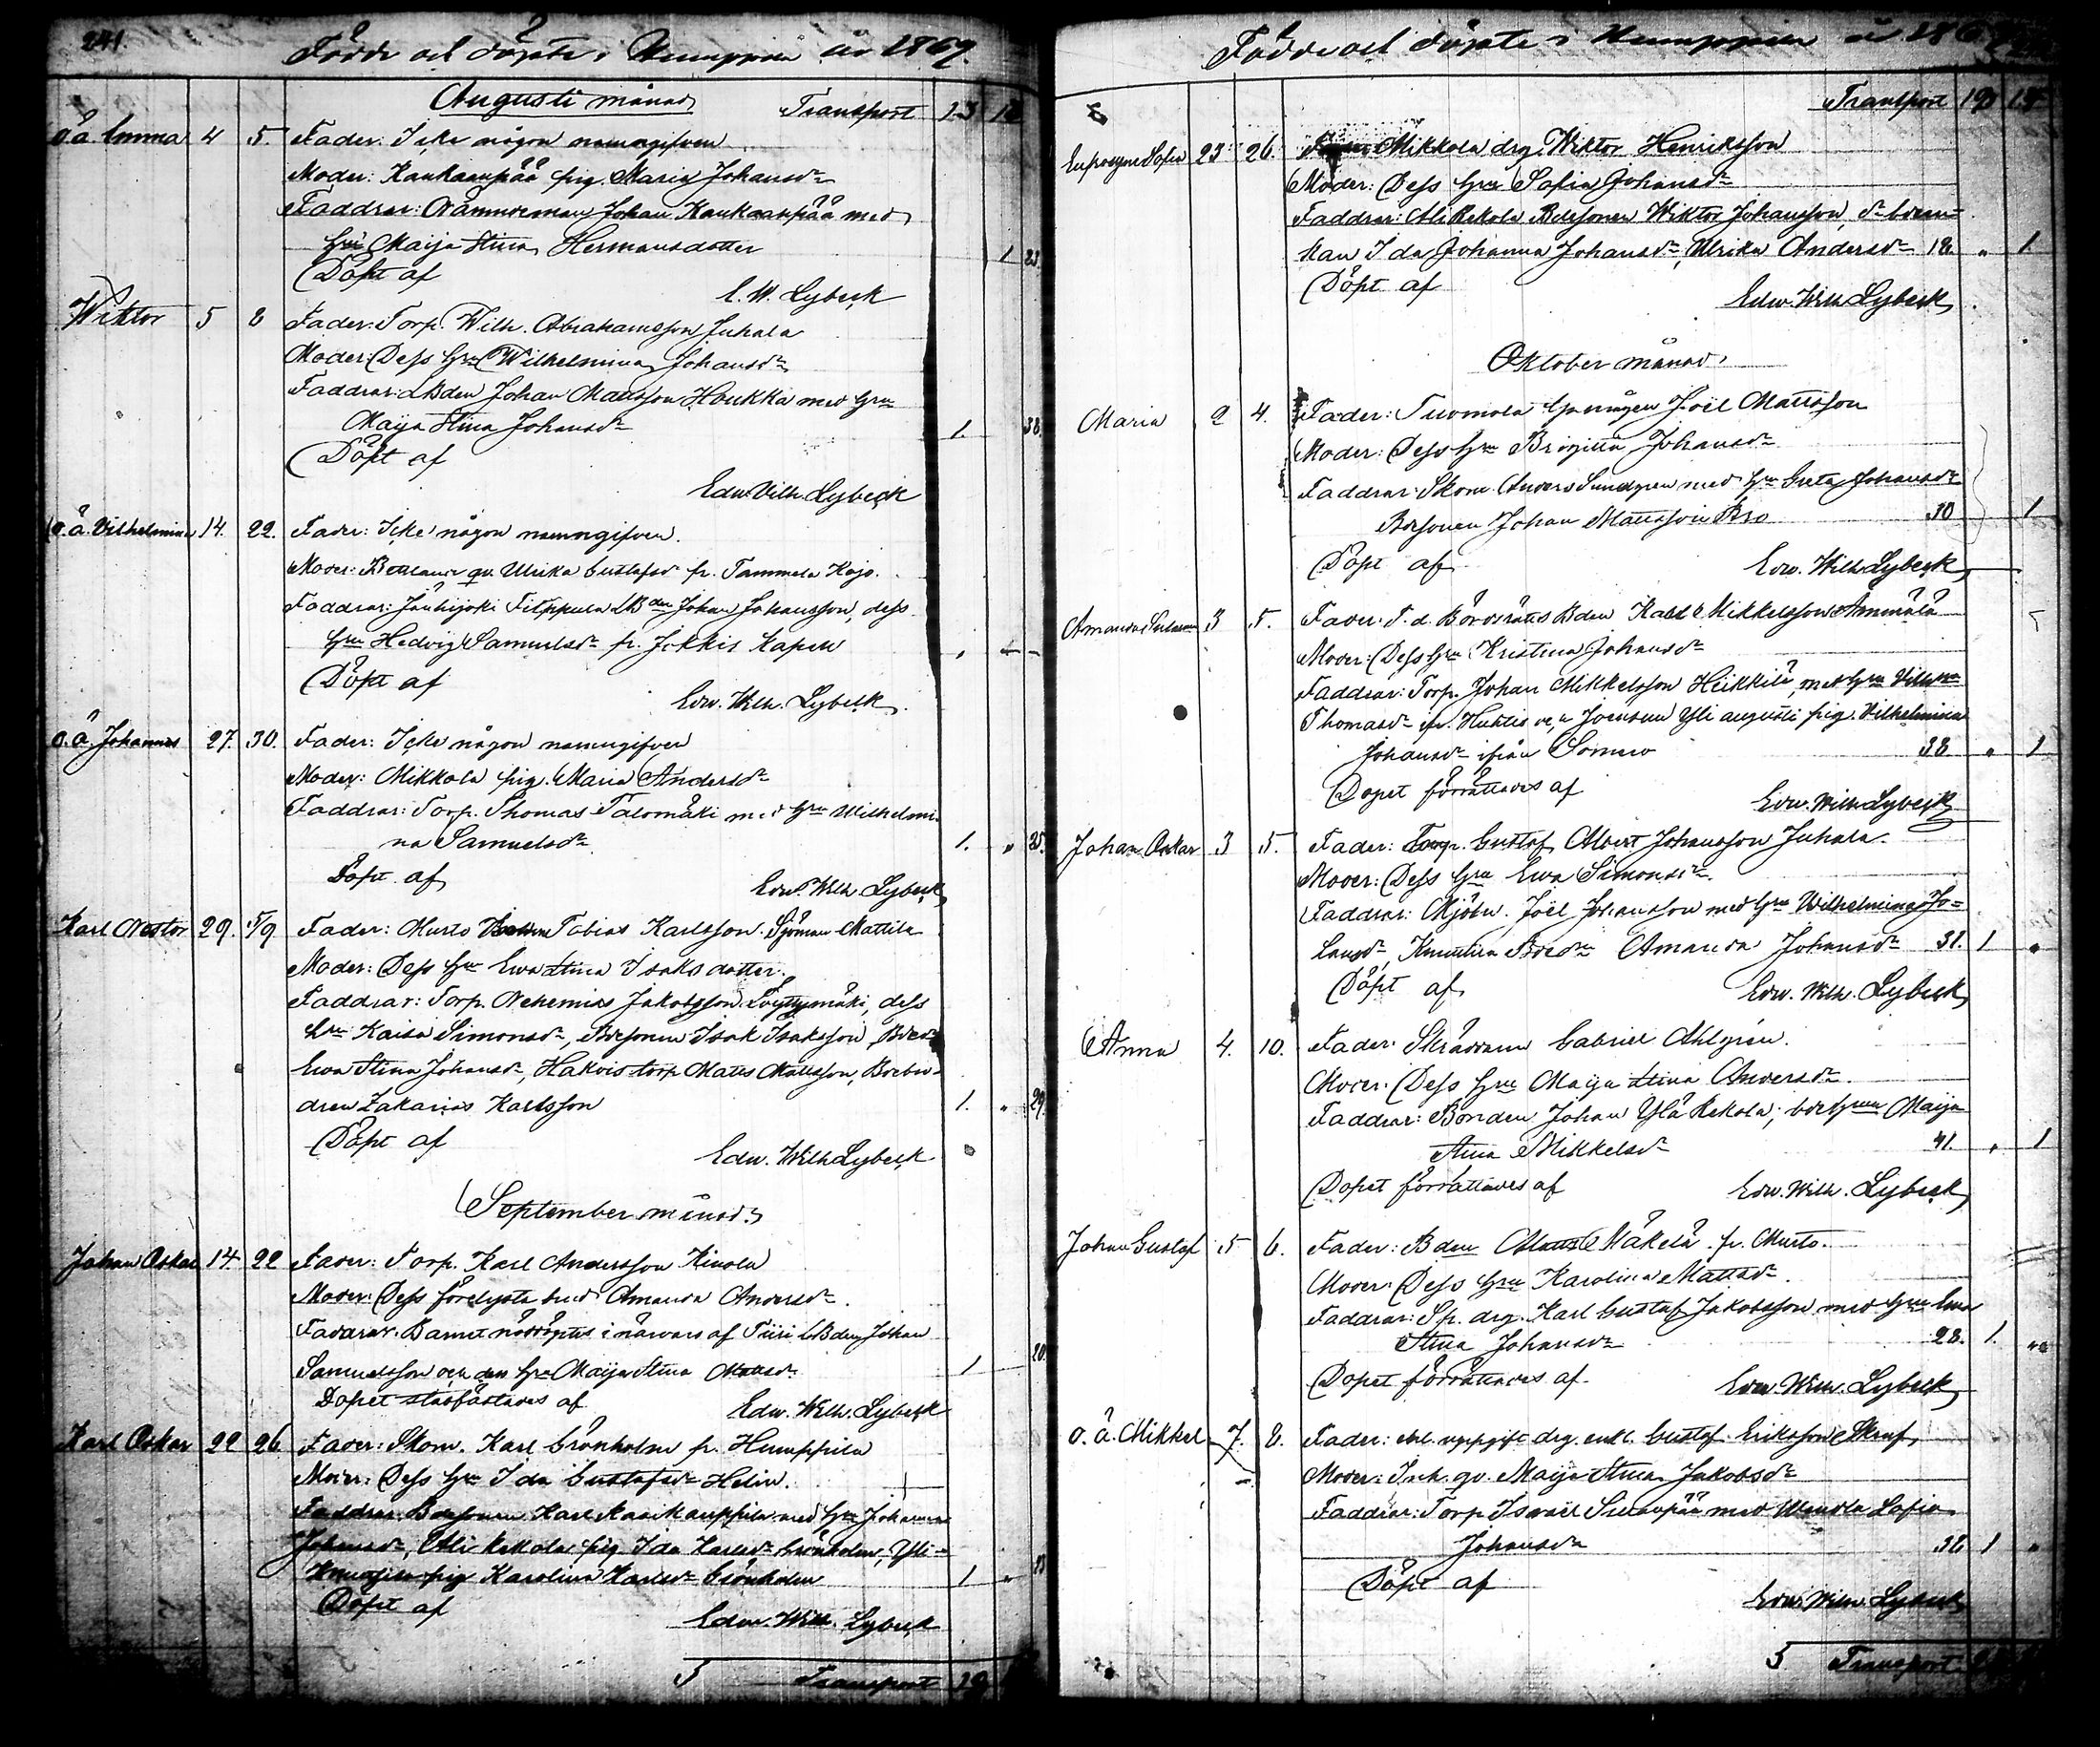 241.
Födde och döpte i Humppila år 1869.
Augusti månad Transport 13
o.ä. Emma 4 5. Fader: Icke någon namngifven
Moder: Kankaanpää pig. Maria Johansdr
Faddrar: Nämndeman Johan Kankaanpää med
hru Maija Stina Hermansdotter 1 23.
Döpt af
E. W. Lybeck
Wiktor 5 8 Fader: Torp. Wilh. Abrahamsson Juhala
Moder: Dess hru Wilhelmina Johansdr
Faddrar: LBden Johan Mattsson Houkka med hru
Maija Stina Johansdr 1. 38.
Döpt af
Edw. Wilh. Lybeck
o.ä. Vilhelmina 14. 22. Fader: Icke någon namngifven.
Moder: qv. Ulrika Gustafsdr fr. Tammela Kojo.
Faddrar: Jänhijoki Filppula LBden Johan Johansson, dess
hru Hedvig Samuelsdr fr. Jokkis Kapell
Döpt af
Edw. Wilh. Lybeck.
o.ä. Johannes 27. 30. Fader: Icke någon namngifven
Moder: Mikkola pig. Maria Andersdr
Faddrar: Torp. Thomas Talomäki med hru Wilhelmi-
na Samuelsdr 1. " 25.
Döpt af
Edw. Wilh. Lybeck
Karl Nestor 29. 5/9 Fader: Murto Tobias Karlsson. Sjöman Mattila
Moder: Dess hru Ewa Stina Isaksdotter.
Faddrar: Torp. Nehemias Jakobsson Löyttymäki, dess
hru Kaisa Simonsdr, Bdesonen Isak Isaksson, Bdedr
Ewa Stina Johansdr, Hakois torp Matts Mattsson, Bdebro-
dren Zakarias Karlsson 1. " 29.
Döpt af
Edw. Wilh. Lybeck
September månad.
Johan Oskar 14 22 Fader: Torp. Karl Andersson Kinola
Moder: Dess förelysta brud Amanda Andersdr.
Faddrar: Barnet nöddöptes i närvaro af Tiiri LBden Johan
Samuelsson och dess hru Maija Stina Mattsdr 1 20.
Dopet stadfästades af
Edw. Wilh. Lybeck
Karl Oskar 22 26 Fader: Skom. Karl Grönholm fr. Humppila
Moder: Dess hru Ida Gustafsdr Helin.
Faddrar: Bdesonen Karl med hru Johanna
Johansdr, Ali Kekola pig Ida Karlsdr Grönholm, Yli-
pig Karolina Karlsdr Grönholm 1 "
Döpt af
Edw. Wilh. Lybeck
5 Transport 19
Födde och döpte i Humppila år 186
Transport 19
Eufrosyne Sofia 23 26. Mikkola drg. Wiktor Henriksson
Moder: Dess hru Sofia Johansdr
Faddrar: Ali Kekola Bdesonen Wiktor Johansson,
Ida Johanna Johansdr, Ulrika Andersdr 18. " 1
Döpt af
Edw. Wilh. Lybeck
Oktober månad.
Maria 2 4. Fader: Tuomola Joël Mattsson
Moder: Dess hru Brigitta Johansdr
Faddrar: Skom. Anders Sundgren med hru Greta Johansdr
Bdesonen Johan Mattsson 30 1
Döpt af
Edw. Wilh. Lybeck
Amanda 3 5. Fader: F.d. Bden Karl Mikkelsson Ammälä
Moder: Dess hru Kristina Johansdr
Faddrar: Torp. Johan Mikkelsson Heikkilä, med hru
Thomasdr fr. Huhtis och Yli augusti pig. Vilhelmina
Johansdr ifrån Somero 38 " 1
Dopet förrättades af
Edw. Wilh. Lybeck
Johan Oskar 3 5. Fader: Torp. Gustaf Albert Johansson Juhala.
Moder: Dess hru Ewa Simonsdr.
Faddrar: Mjöln. Joël Johansson med hru Wilhelmina Jo-
hansdr, Bdedr Amanda Johansdr 31. 1 "
Döpt af
Edw. Wilh. Lybeck
Anna 4. 10. Fader: Skräddaren Gabriel Ahlgrén.
Moder: Dess hru Maija Stina Andersdr.
Faddrar: Bonden Johan Ylä Kekola, Maija
Stina Mikkelsdr 41. " 1
Dopet förrättades af
Edw. Wilh. Lybeck
Johan Gustaf 5 6. Fader: Bden Matts Mäkelä fr. Murto.
Moder: Dess hru Karolina Mattsdr.
Faddrar: Sp. drg. Karl Gustaf Jakobsson med hru Ewa
Stina Johansdr 28. 1. "
Dopet förrättades af
Edw. Wilh. Lybeck
o.ä. Mikkel 7. 8. Fader: enl. uppgift drg. enkl. Gustaf Eriksson
Moder: Inh. qv. Maija Stina Jakobsdr
Faddrar: Torp Israël med Wendla Sofia
Johansdr 36 1 "
Döpt af
Edw. Wilh. Lybeck
5 Transport